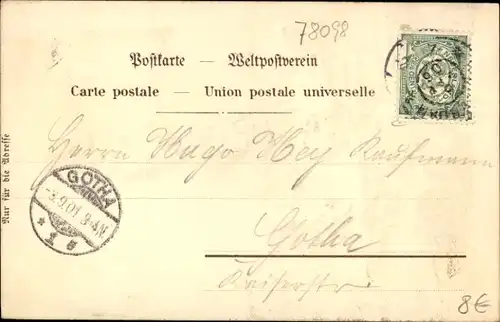 78098
Postkarte — Weltpostverein
Carte postale — Union postale universelle
Nur für die Adresse
Herrn Hugo Hey Kaufmann
GOTHA
-3.9.01 3-4N
* 1 *
Gotha
Kaiserstr.
8€